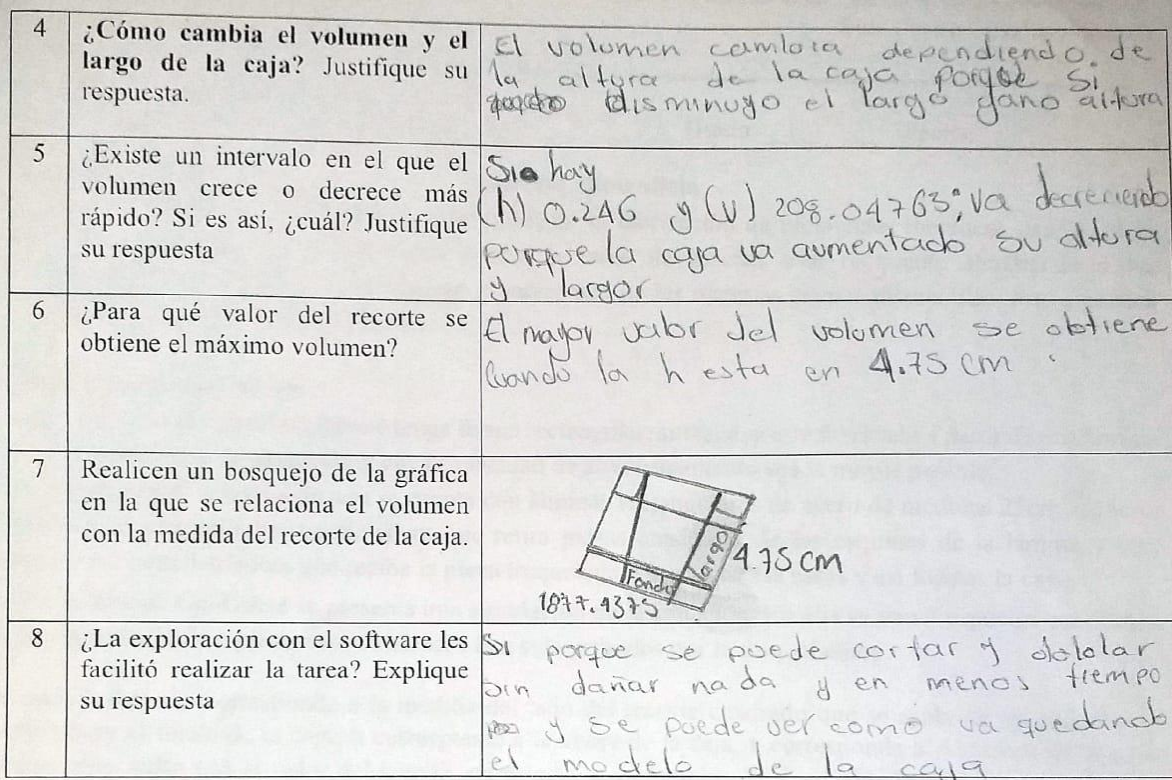 4 ¿Cómo cambia el volumen y el
largo de la caja? Justifique su
respuesta.
El volumen cambia dependiendo. de
la altura de la caja porque si
disminuyo el largo gano altura
5 ¿Existe un intervalo en el que el
volumen crece o decrece más
rápido? Si es así, ¿cuál? Justifique
su respuesta
Si hay
(h) 0.246 y (V) 208.04763; va decreciendo
porque la caja va aumentado su altura
y largor
6 ¿Para qué valor del recorte se
obtiene el máximo volumen?
El mayor valor del volumen se obtiene
Cuando la h esta en 4.75 cm
7 Realicen un bosquejo de la gráfica
en la que se relaciona el volumen
con la medida del recorte de la caja.
largo
4.75 cm
Fondo
1877.9375
8 ¿La exploración con el software les
facilitó realizar la tarea? Explique
su respuesta
Si porque se puede cortar y dololar
sin dañar nada y en menos tiempo
y se puede ver como va quedando
el modelo de la caja